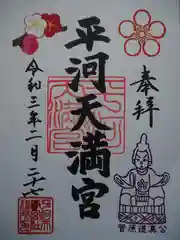 奉拝
平河天満宮
令和三年二月二十七
菅原道真公